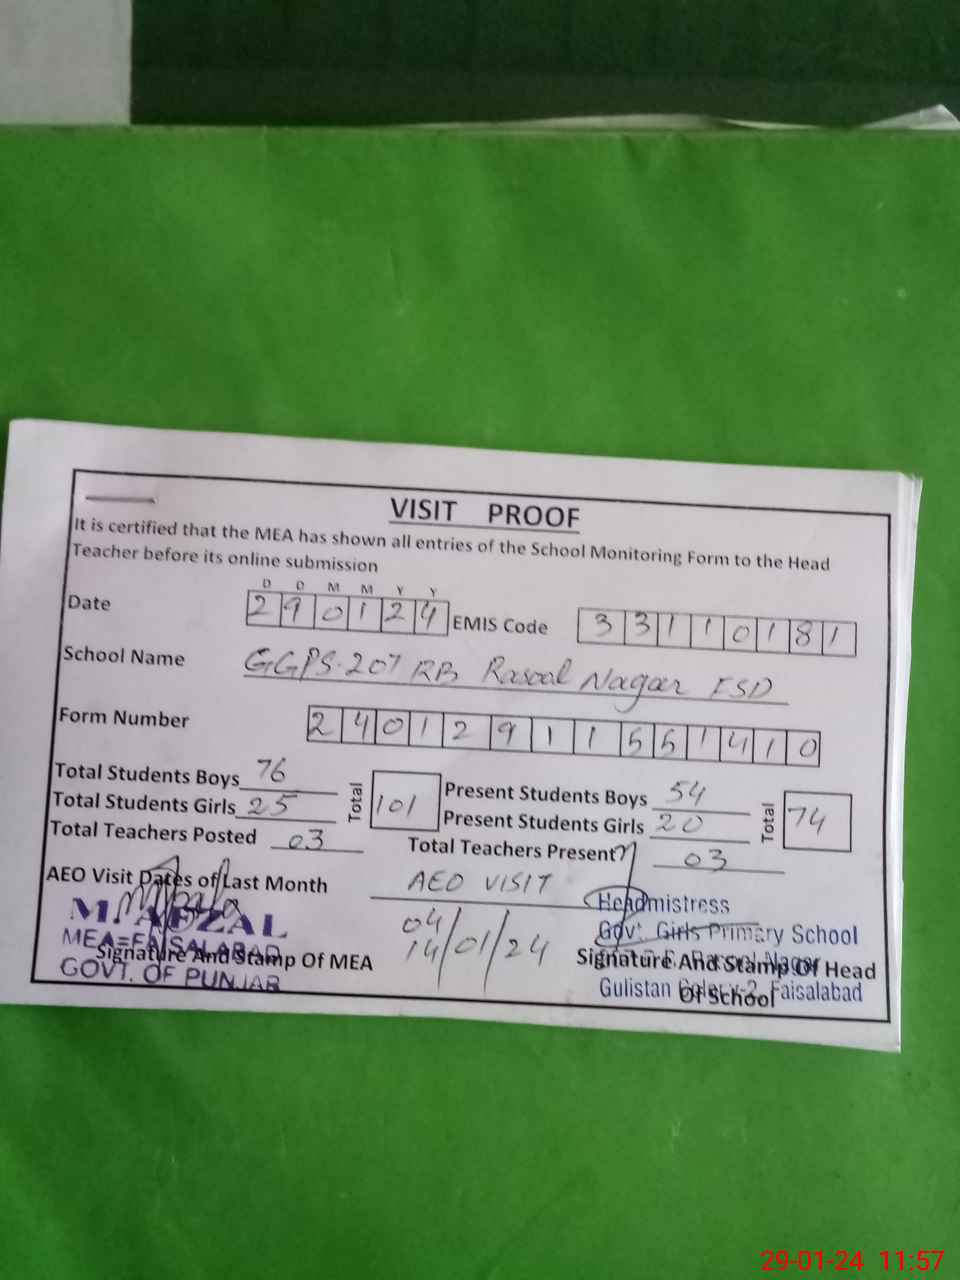 VISIT PROOF
It is certified that the MEA has shown all entries of the School Monitoring Form to the Head
Teacher before its online submission
D D M M Y Y
Date 290124 EMIS Code 33110181
School Name GGPS. 207 RB Rasool Nagar FSD
Form Number 24012911551410
Total Students Boys 76 Total 101 Present Students Boys 54 Total 74
Total Students Girls 25 Present Students Girls 20
Total Teachers Posted 03 Total Teachers Present 03
AEO Visit Dates of Last Month AEO VISIT
04
14/01/24
M. AFZAL
MEA=FAISALABAD
GOVT. OF PUNJAB
Signature And Stamp Of MEA
Headmistress
Govt. Girls Primary School
Rasool Nagar
Gulistan Faisalabad
Signature And Stamp Of Head
Of School
29-01-24 11:57